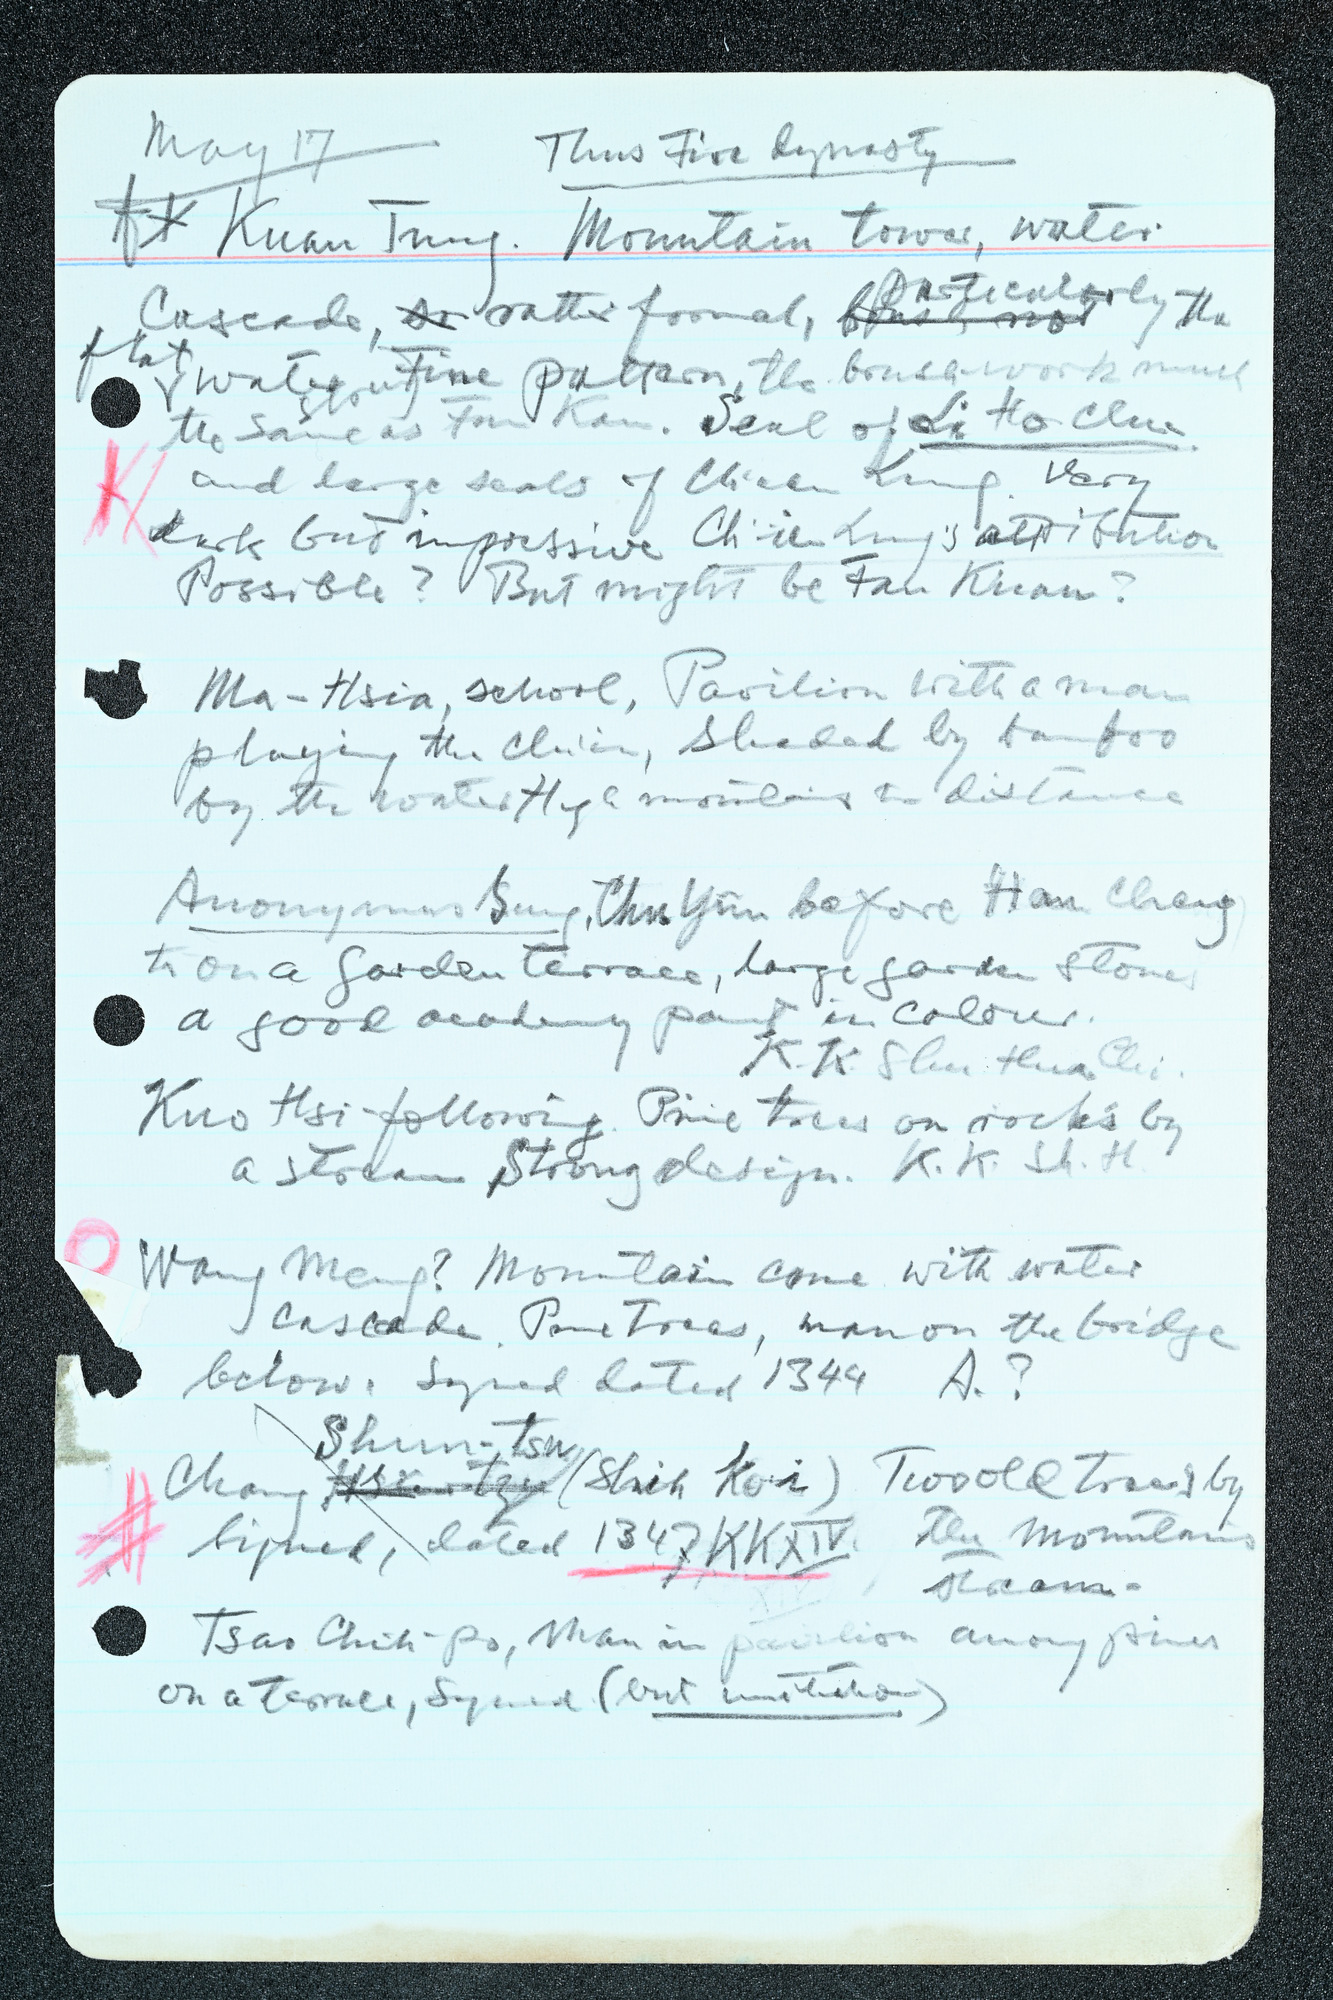 May 17 Thus Five dynasty
Kuan Tung. Mountain tower, water
Cascade, so rather formal, particularly the
flat water, Fine pattern, the brushwork much
the same as Fan Kuan. Seal of Li Ho Chu
and large seals of Chien Lung. Very
dark but impressive Ch'ien Lung's attribution
Possible? But might be Fan Kuan?
Ma-Hsia, school, Pavilion with a man
playing the Ch'in, shaded by bamboo
by the water High mountains in distance
Anonymus Sung, Chu Yün before Han Cheng
ti on a garden terrace, large garden stones
a good academy paint in colour.
K.K. Shu Hua Chi.
Kuo Hsi following. Pine trees on rocks by
a stream, Strong design. K.K. Sh. H.
Wang Meng? Mountain come with water
cascade. Pine Trees, man on the bridge
below. Signed dated 1344 A.?
Shun-tsu
Chang (Shih K'ui) Two old trees by
signed, dated 1347, KK XIV. the mountain
stream.
XIV
Tsao Chih-po, Man in pavilion among pines
on a terrace, signed (but imitation)